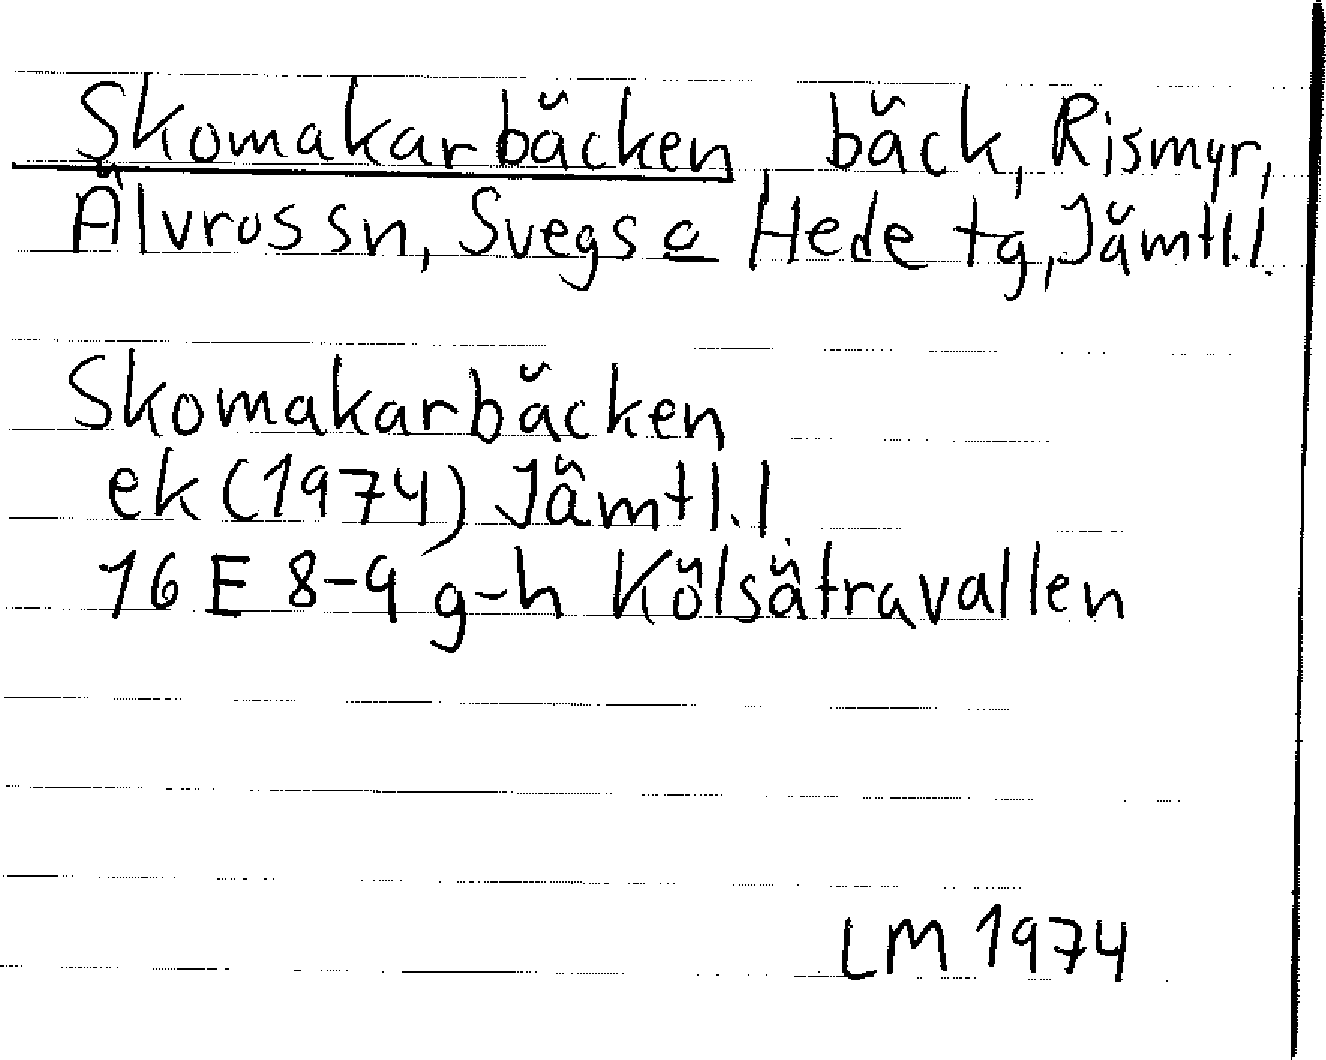 Skomakarbäcken bäck, Rismyr,
Älvros sn, Svegs o Hede tg, Jämtl.l.
Skomakarbäcken
ek (1974) Jämtl.l.
16 E 8-9 g-h Kölsätravallen
LM 1974